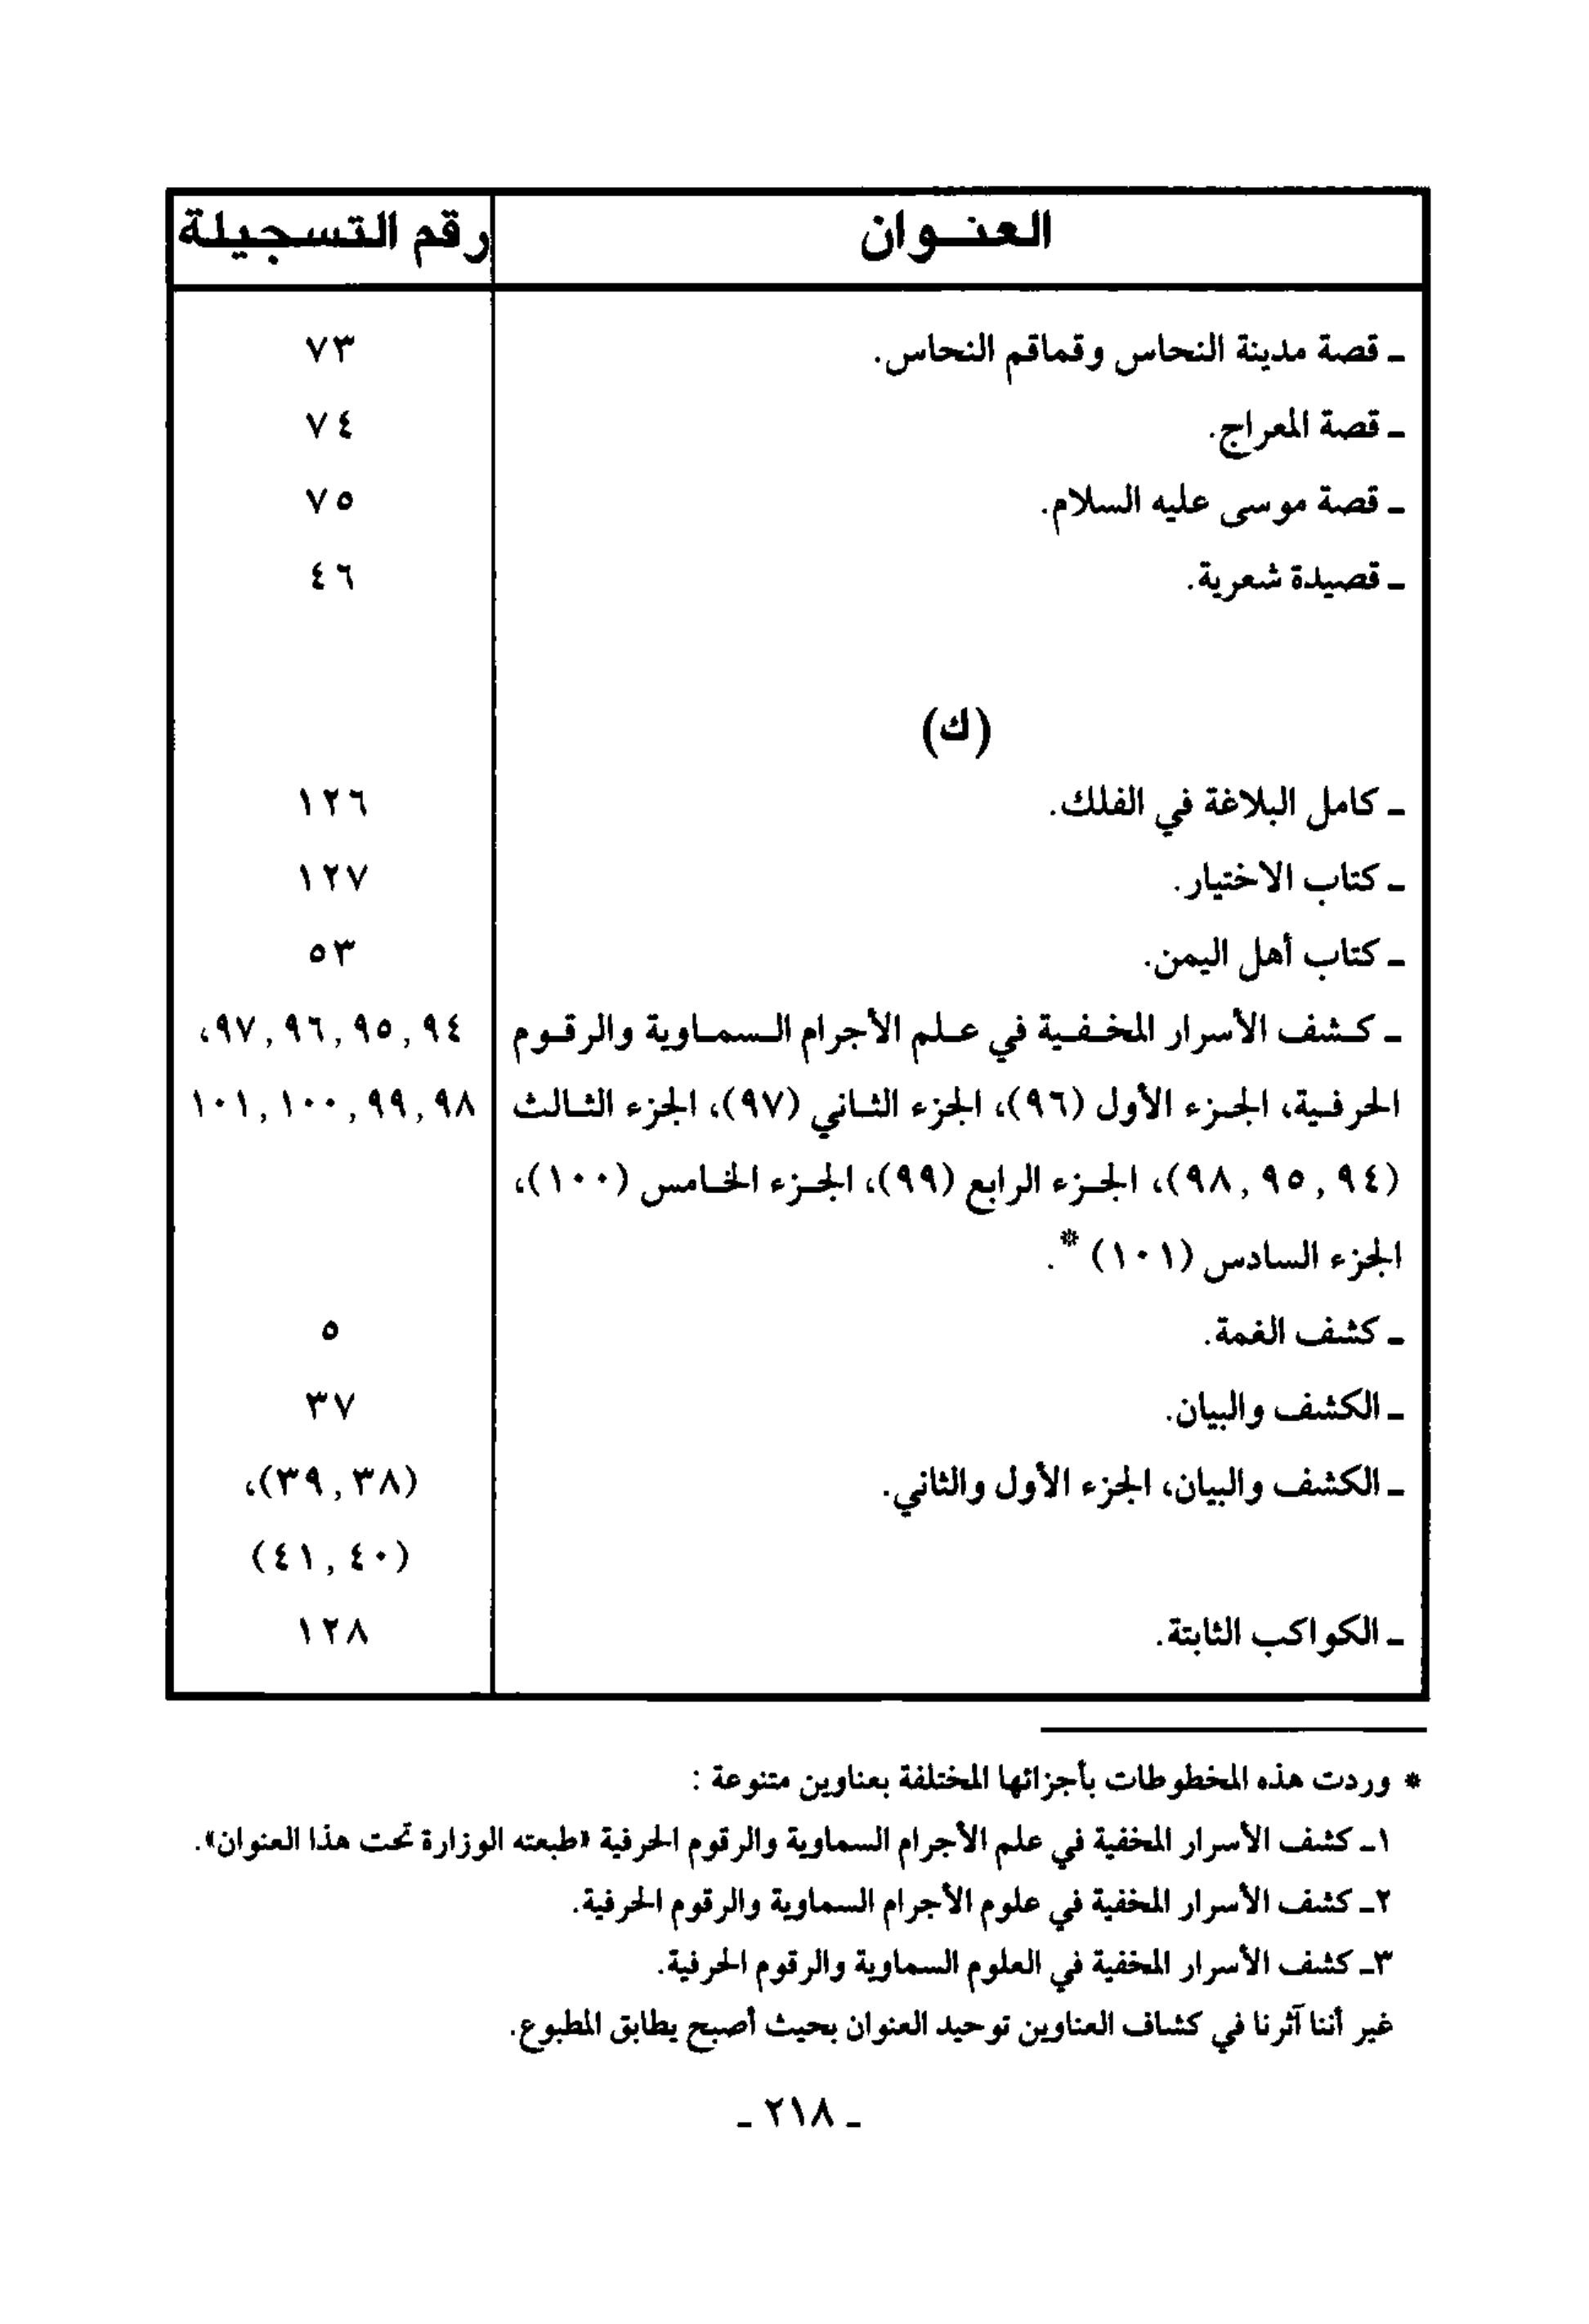 العنـوان رقم التسجيلة
ـ قصة مدينة النحاس وقماقم النحاس. ٧٣
ـ قصة المعراج. ٧٤
ـ قصة موسى عليه السلام. ٧٥
ـ قصيدة شعرية. ٤٦
(ك)
ـ كامل البلاغة في الفلك. ١٢٦
ـ كتاب الاختيار. ١٢٧
ـ كتاب أهل اليمن. ٥٣
ـ كـشف الأسرار المخـفـية في عـلم الأجرام الـسمـاوية والرقـوم ٩٤, ٩٥, ٩٦, ٩٧،
الحرفـية، الجـزء الأول (٩٦)، الجزء الثـاني (٩٧)، الجزء الثـالث ٩٨, ٩٩, ١٠٠, ١٠١
(٩٤, ٩٥, ٩٨)، الجـزء الرابع (٩٩)، الجـزء الخـامس (١٠٠)،
الجزء السادس (١٠١) *.
ـ كشف الغمة. ٥
ـ الكشف والبيان. ٣٧
ـ الكشف والبيان، الجزء الأول والثاني. (٣٨, ٣٩)،
(٤٠, ٤١)
ـ الكواكب الثابتة. ١٢٨
* وردت هذه المخطوطات بأجزائها المختلفة بعناوين متنوعة :
١ـ كشف الأسرار المخفية في علم الأجرام السماوية والرقوم الحرفية «طبعته الوزارة تحت هذا العنوان».
٢ـ كشف الأسرار المخفية في علوم الأجرام السماوية والرقوم الحرفية.
٣ـ كشف الأسرار المخفية في العلوم السماوية والرقوم الحرفية.
غير أننا آثرنا في كشاف العناوين توحيد العنوان بحيث أصبح يطابق المطبوع.
ـ ٢١٨ ـ